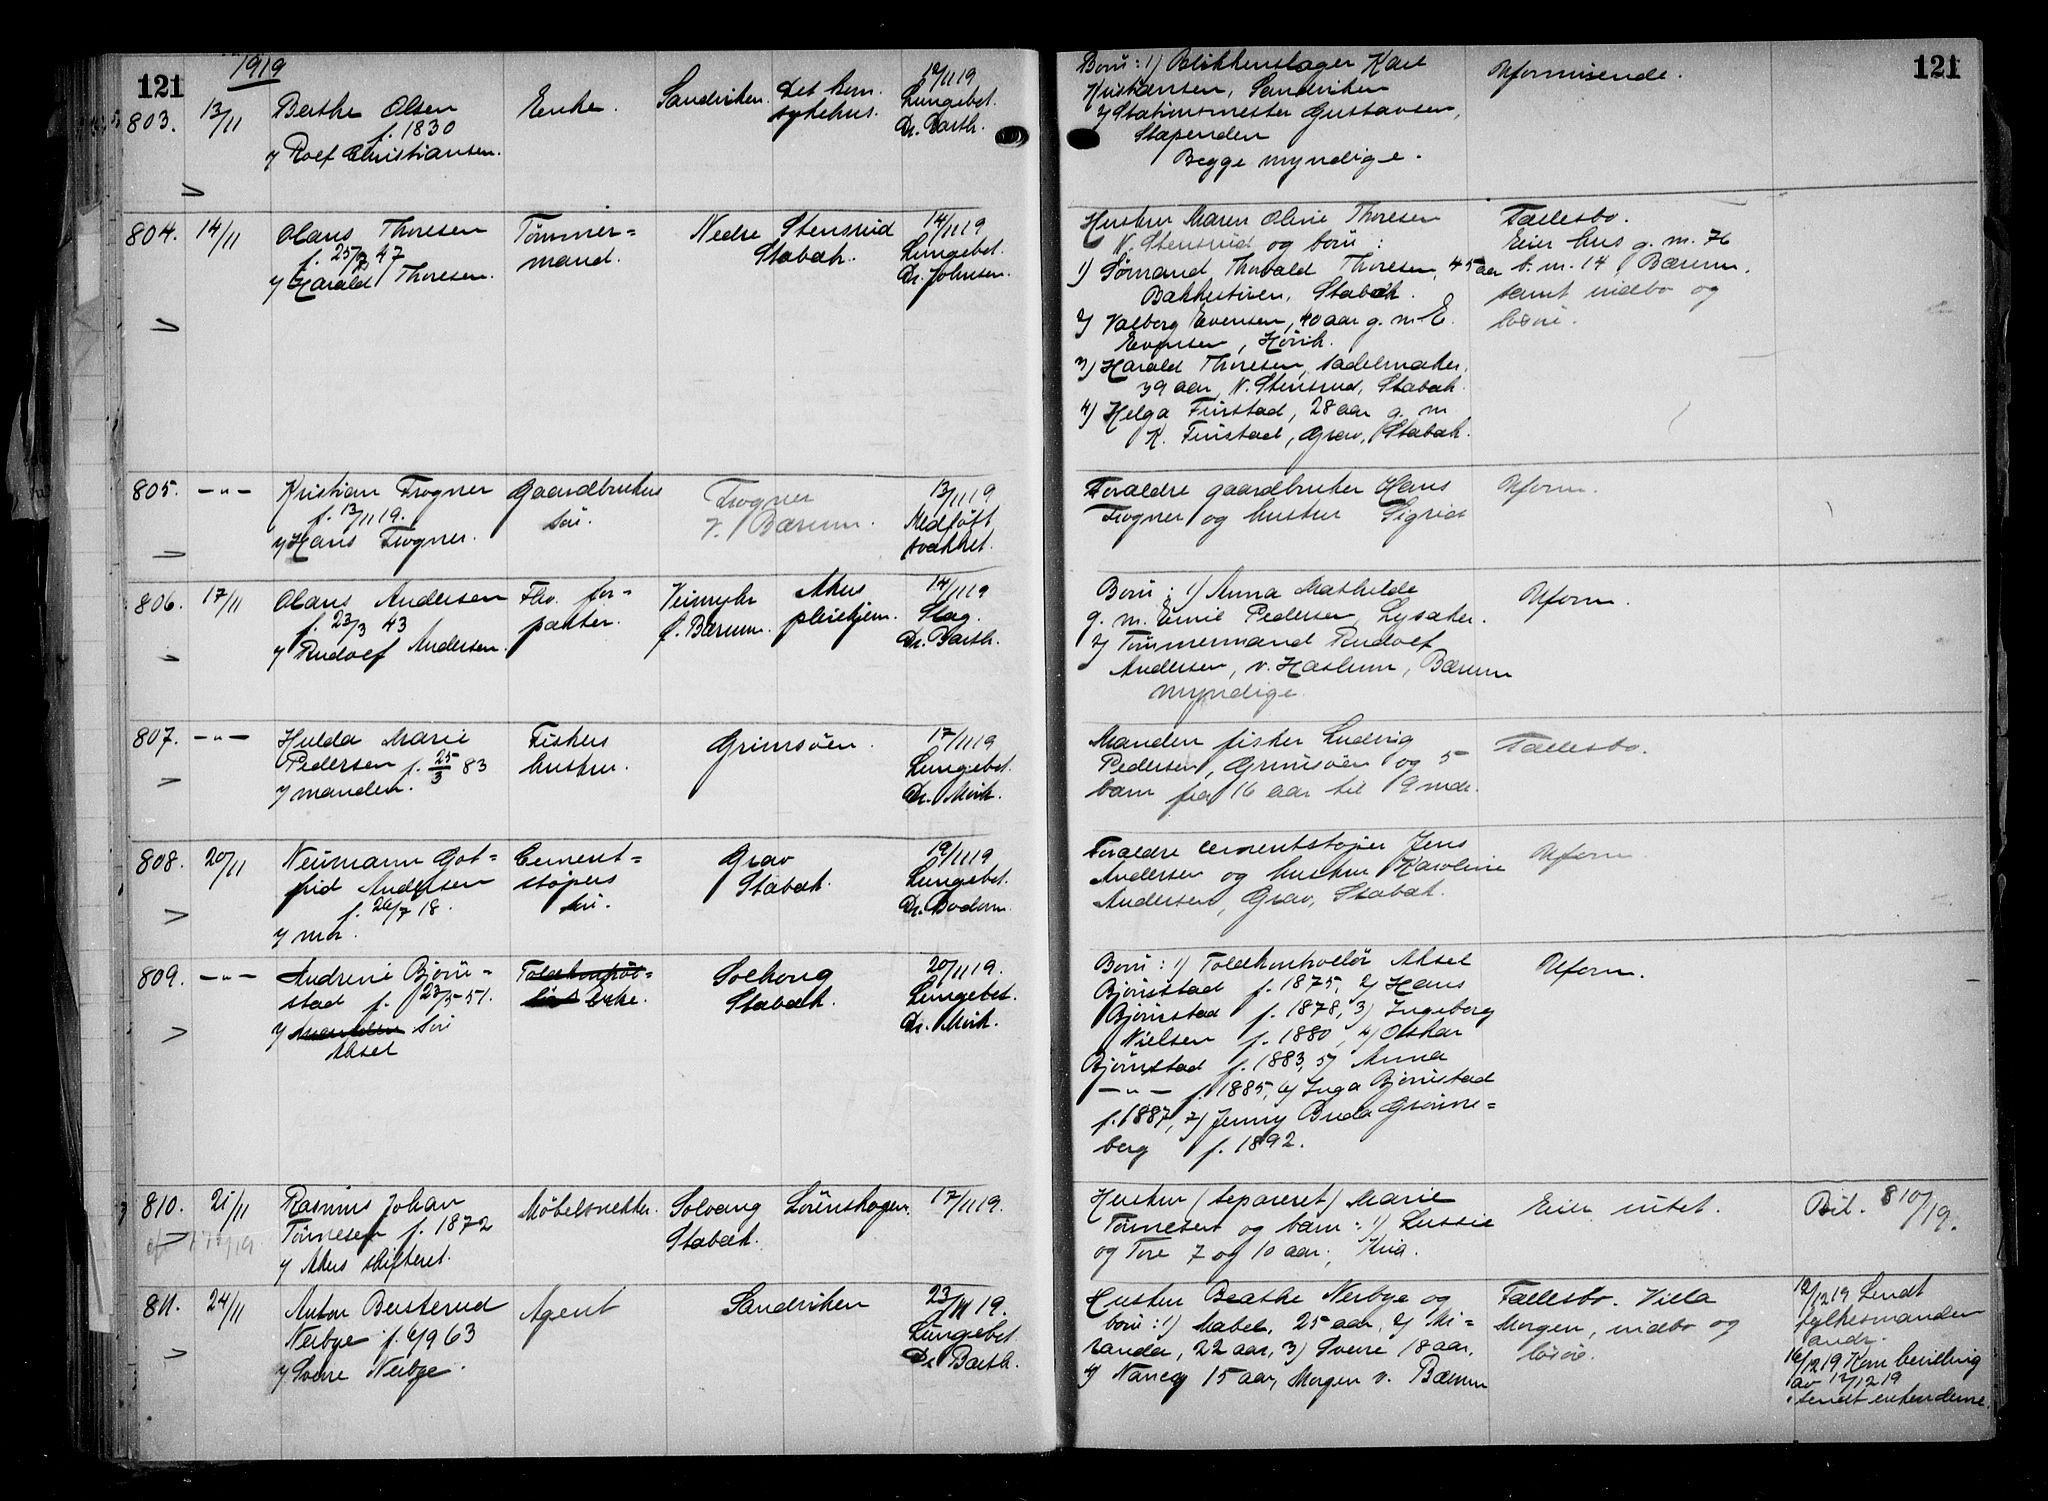 121
1919
803. 13/11 Berthe Olsen Enke. Sandviken. Det kom. 12/11 19
f. 1830 sykehus. Lungebet.
v/ Rolf Christiansen. Dr. Barth.
Børn: 1) Blikkenslager Karl Uformuende. 121
Kristiansen, Sandviken
2) Stationsmester Gustavsen,
Slependen
Begge myndige.
804. 14/11 Olaus Thoresen Tømmer= Nedre Stensrud 14/11 19
f. 25/7 47 mand. Stabæk. Lungebet.
v/ Harald Thoresen. Dr. Johnsen.
Hustru Maren Oline Thoresen Fællesbo.
N. Stensrud og børn: Eier hus g. nr. 76
1) Sømand Thorvald Thoresen, 45 aar b. nr. 14, Bærum.
Bakkestuen, Stabæk. samt indbo og
2) Valborg Evensen, 40 aar g. m. E. løsøre.
Evensen, Høvik.
3) Harald Thoresen, sadelmaker,
39 aar, N. Stensrud, Stabæk.
4) Helga Finstad, 28 aar g. m
K. Finstad, Grav, Stabæk.
805. — " — Kristian Frogner Gaardbrukers Frogner 13/11 19
f. 13/11 19. søn. V. Bærum. Medfødt
v/ Hans Frogner. svakhet.
Forældre gaardbruker Hans Uform.
Frogner og hustru Sigrid
806. 17/11 Olaus Andersen Fhv. for= Veimyhr Akers 14/11 19
f. 23/3 43 pakter. f. Bærum. pleiehjem. Slag.
v/ Rudolf Andersen. Dr. Barth.
Børn: 1) Anna Mathilde Uform.
g. m. Emil Pedersen, Lysaker.
2) Tømmermand Rudolf
Andersen, v. Haslum, Bærum
myndige.
807. — " — Hulda Marie Fiskers Grimsøen. 17/11 19
Pedersen f. 25/3 83 hustru. Lungebet.
v/ manden. Dr. Mørk.
Manden fisker Ludvig Fællesbo.
Pedersen, Grimsøen og 5
barn fra 16 aar til 9 mdr.
808. 20/11 Neumann Got= Cement= Grav 19/11 19
frid Andersen støpers Stabæk. Lungebet.
f. 26/7 18. søn. Dr. Bodom.
v/ mor.
Forældre cementstøper Jens Uform
Andersen og hustru Karoline
Andersen, Grav, Stabæk.
809. — " — Andrine Bjørn= Toldkontrol= Solhaug 20/11 19.
stad f. 23/5 51. lørs Enke. Stabæk. Lungebet.
v/ manden søn Dr. Mørk.
Aksel
Børn: 1) Toldkontrollør Aksel Uform.
Bjørnstad f. 1875, 2) Hans
Bjørnstad f. 1878, 3) Ingeborg
Nielsen f. 1880, 4) Oskar
Bjørnstad f. 1883, 5) Anna
— " — f. 1885, 6) Inga Bjørnstad
f. 1887, 7) Jenny Buda Grønne=
berg f. 1892.
810. 21/11 Rasmus Johan Møbelsnekker. Solvang Lørenskogen. 17/11 19.
Tønnesen f. 1872 Stabæk.
v/ Akers skifteret.
Hustru (separeret) Marie Eier intet. Bil. 810/19.
Tønnesen og barn: 1) Lussie
og Tore 7 og 10 aar, Kria.
811. 24/11 Anton Beisterud Agent Sandviken 23/11 19.
Nerbye f. 6/9 63 Lungebet.
v/ Sverre Nerbye. Dr Barth.
Hustru Beathe Nerbye og Fællesbo. Villa 12/12 19 Sendt
børn: 1) Mabel, 25 aar, 2) Mi= Morgen, indbo og fylkesmanden
randa, 22 aar, 3) Sverre 18 aar, løsøre. andr.
4) Nancy 15 aar, Morgen v. Bærum 16/12 19 Kom bevilling
av 13/12 19
sendt enkenderne.